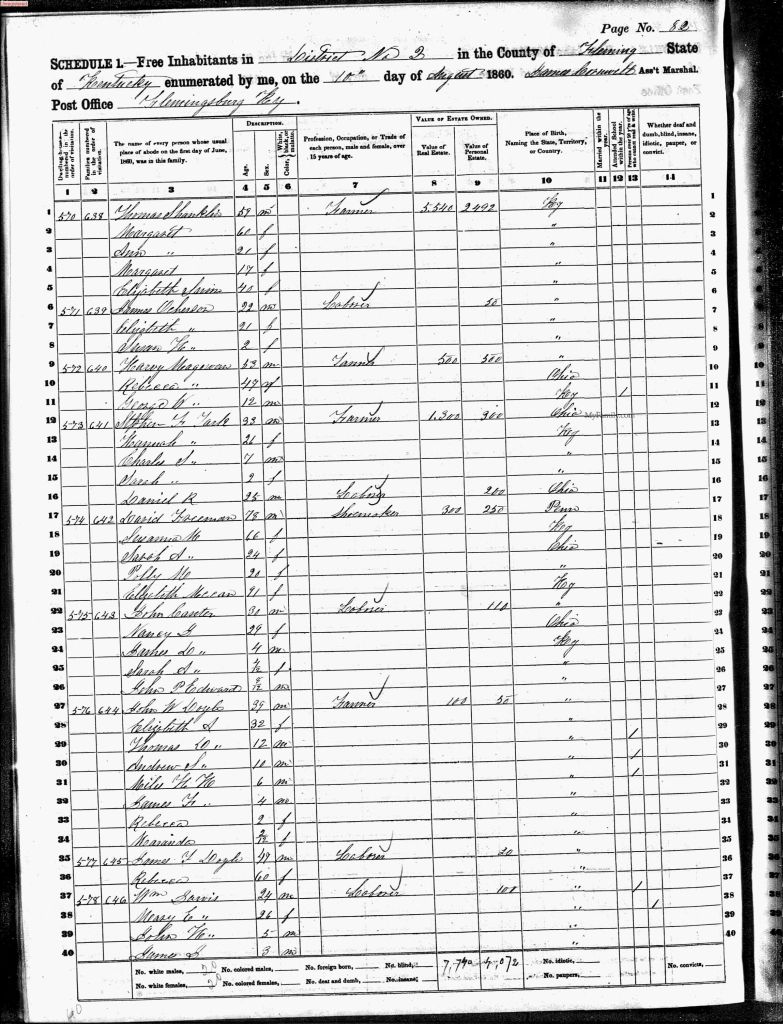 Page No. 82
SCHEDULE 1.—Free Inhabitants in District No 2 in the County of Fleming State
of Kentucky enumerated by me, on the 10th day of August 1860. Ass't Marshal.
Post Office Flemingsburg Ky.
Dwelling-houses—numbered in the order of visitation.
Families numbered in the order of visitation.
The name of every person whose usual place of abode on the first day of June, 1860, was in this family.
DESCRIPTION.
Age.
Sex.
Color, White, black, or mulatto.
Profession, Occupation, or Trade of each person, male and female, over 15 years of age.
VALUE OF ESTATE OWNED.
Value of Real Estate.
Value of Personal Estate.
Place of Birth, Naming the State, Territory, or Country.
Married within the year.
Attended School within the year.
Whether deaf and dumb, blind, insane, idiotic, pauper, or convict.
1 2 3 4 5 6 7 8 9 10 11 12 13 14
1 570 638 Thomas Shanklin 59 m Farmer 5.540 2492 Ky
2 Margaret 60 f "
3 Ann " 21 f "
4 Margaret 17 f "
5 Elizabeth 40 f "
6 571 639 James 22 m Laborer 50 "
7 Elizabeth " 21 f "
8 Susan 2 f "
9 572 640 Harvy Magowan 53 m Tanner 500 500 "
10 Rebecca " 47 f Ohio
11 George W " 12 m Ky 1
12 573 641 33 m Farmer 1.300 300 Ohio
13 Hannah " 26 f Ky
14 Charles S " 7 m "
15 Sarah " 2 f "
16 Daniel R 25 m Laborer 200 Ohio
17 574 642 David Freeman 78 m Shoemaker 300 250 Penn
18 Susanna M 66 f Ky
19 Sarah A " 24 f Ohio
20 Polly M 20 f "
21 Elizabeth 21 f Ky
22 575 643 John 30 m Laborer 110 "
23 Nancy 29 f Ohio
24 James D " 4 m Ky
25 Sarah A " f "
26 John P Edward m "
27 576 644 John W Doyle 39 m Farmer 100 50 "
28 Elizabeth A 32 f "
29 Thomas D " 12 m " 1
30 Andrew S " 10 m " 1
31 Miles H 6 m " 1
32 James F " 4 m "
33 Rebecca 2 f "
34 Maranda f "
35 577 645 James T Doyle 49 m Laborer 20 "
36 Rebecca 60 f "
37 578 646 Wm Jarvis 24 m Laborer 100 " 1
38 Mary E " 26 f " 1
39 John W " 5 m "
40 James 3 m "
No. white males, 20 No. colored males, No. foreign born, No. blind, 7,740 No. idiotic, No. convicts,
No. white females, 20 No. colored females, No. deaf and dumb, No. insane, No. paupers,